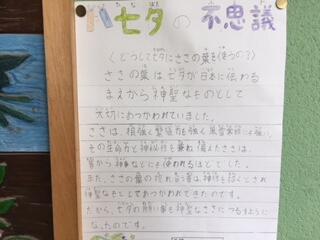 七夕の不思議
〈どうして七夕にささの葉を使うの?〉
ささの葉は七夕が日本に伝わる
まえから神聖なものとして
大切にあつかわれていました。
ささは、根強く繁殖力も強く風雪霜にも強い。
その生命力と神秘性を兼ね備えたささは、
昔から神事などにも使われるほどでした。
また、ささの葉の揺れる音は、神様を招くとされ
神聖なものとしてあつかわれてきたのです。
だから、七夕の願い事も神聖なささにつるすように
なったのです。